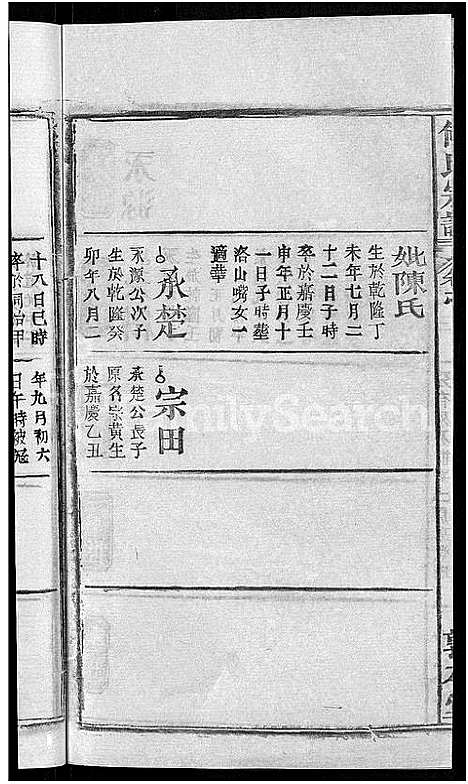 妣陳氏
生於乾隆丁
未年七月二
十二日子時
卒於嘉慶壬
申年正月十
一日子時塟
洛山嘴女一
適華
承楚
永源公次子
生於乾隆癸
卯年八月二
宗田
承楚公長子
原名宗黄生
於嘉慶乙丑
十八日巳時
卒於同治甲
年九月初六
日午時被冦
FamilySearch